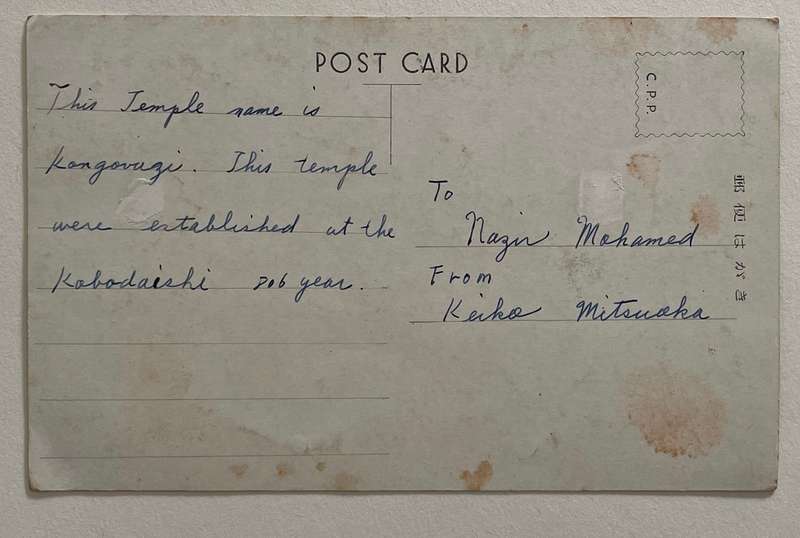 POST CARD
C.P.P.
This Temple name is
Kongovuzi. This temple
were established at the
Kobodaishi 206 year.
To
Nazir Mohamed
From
Keiko Mitsuoka
郵便はがき